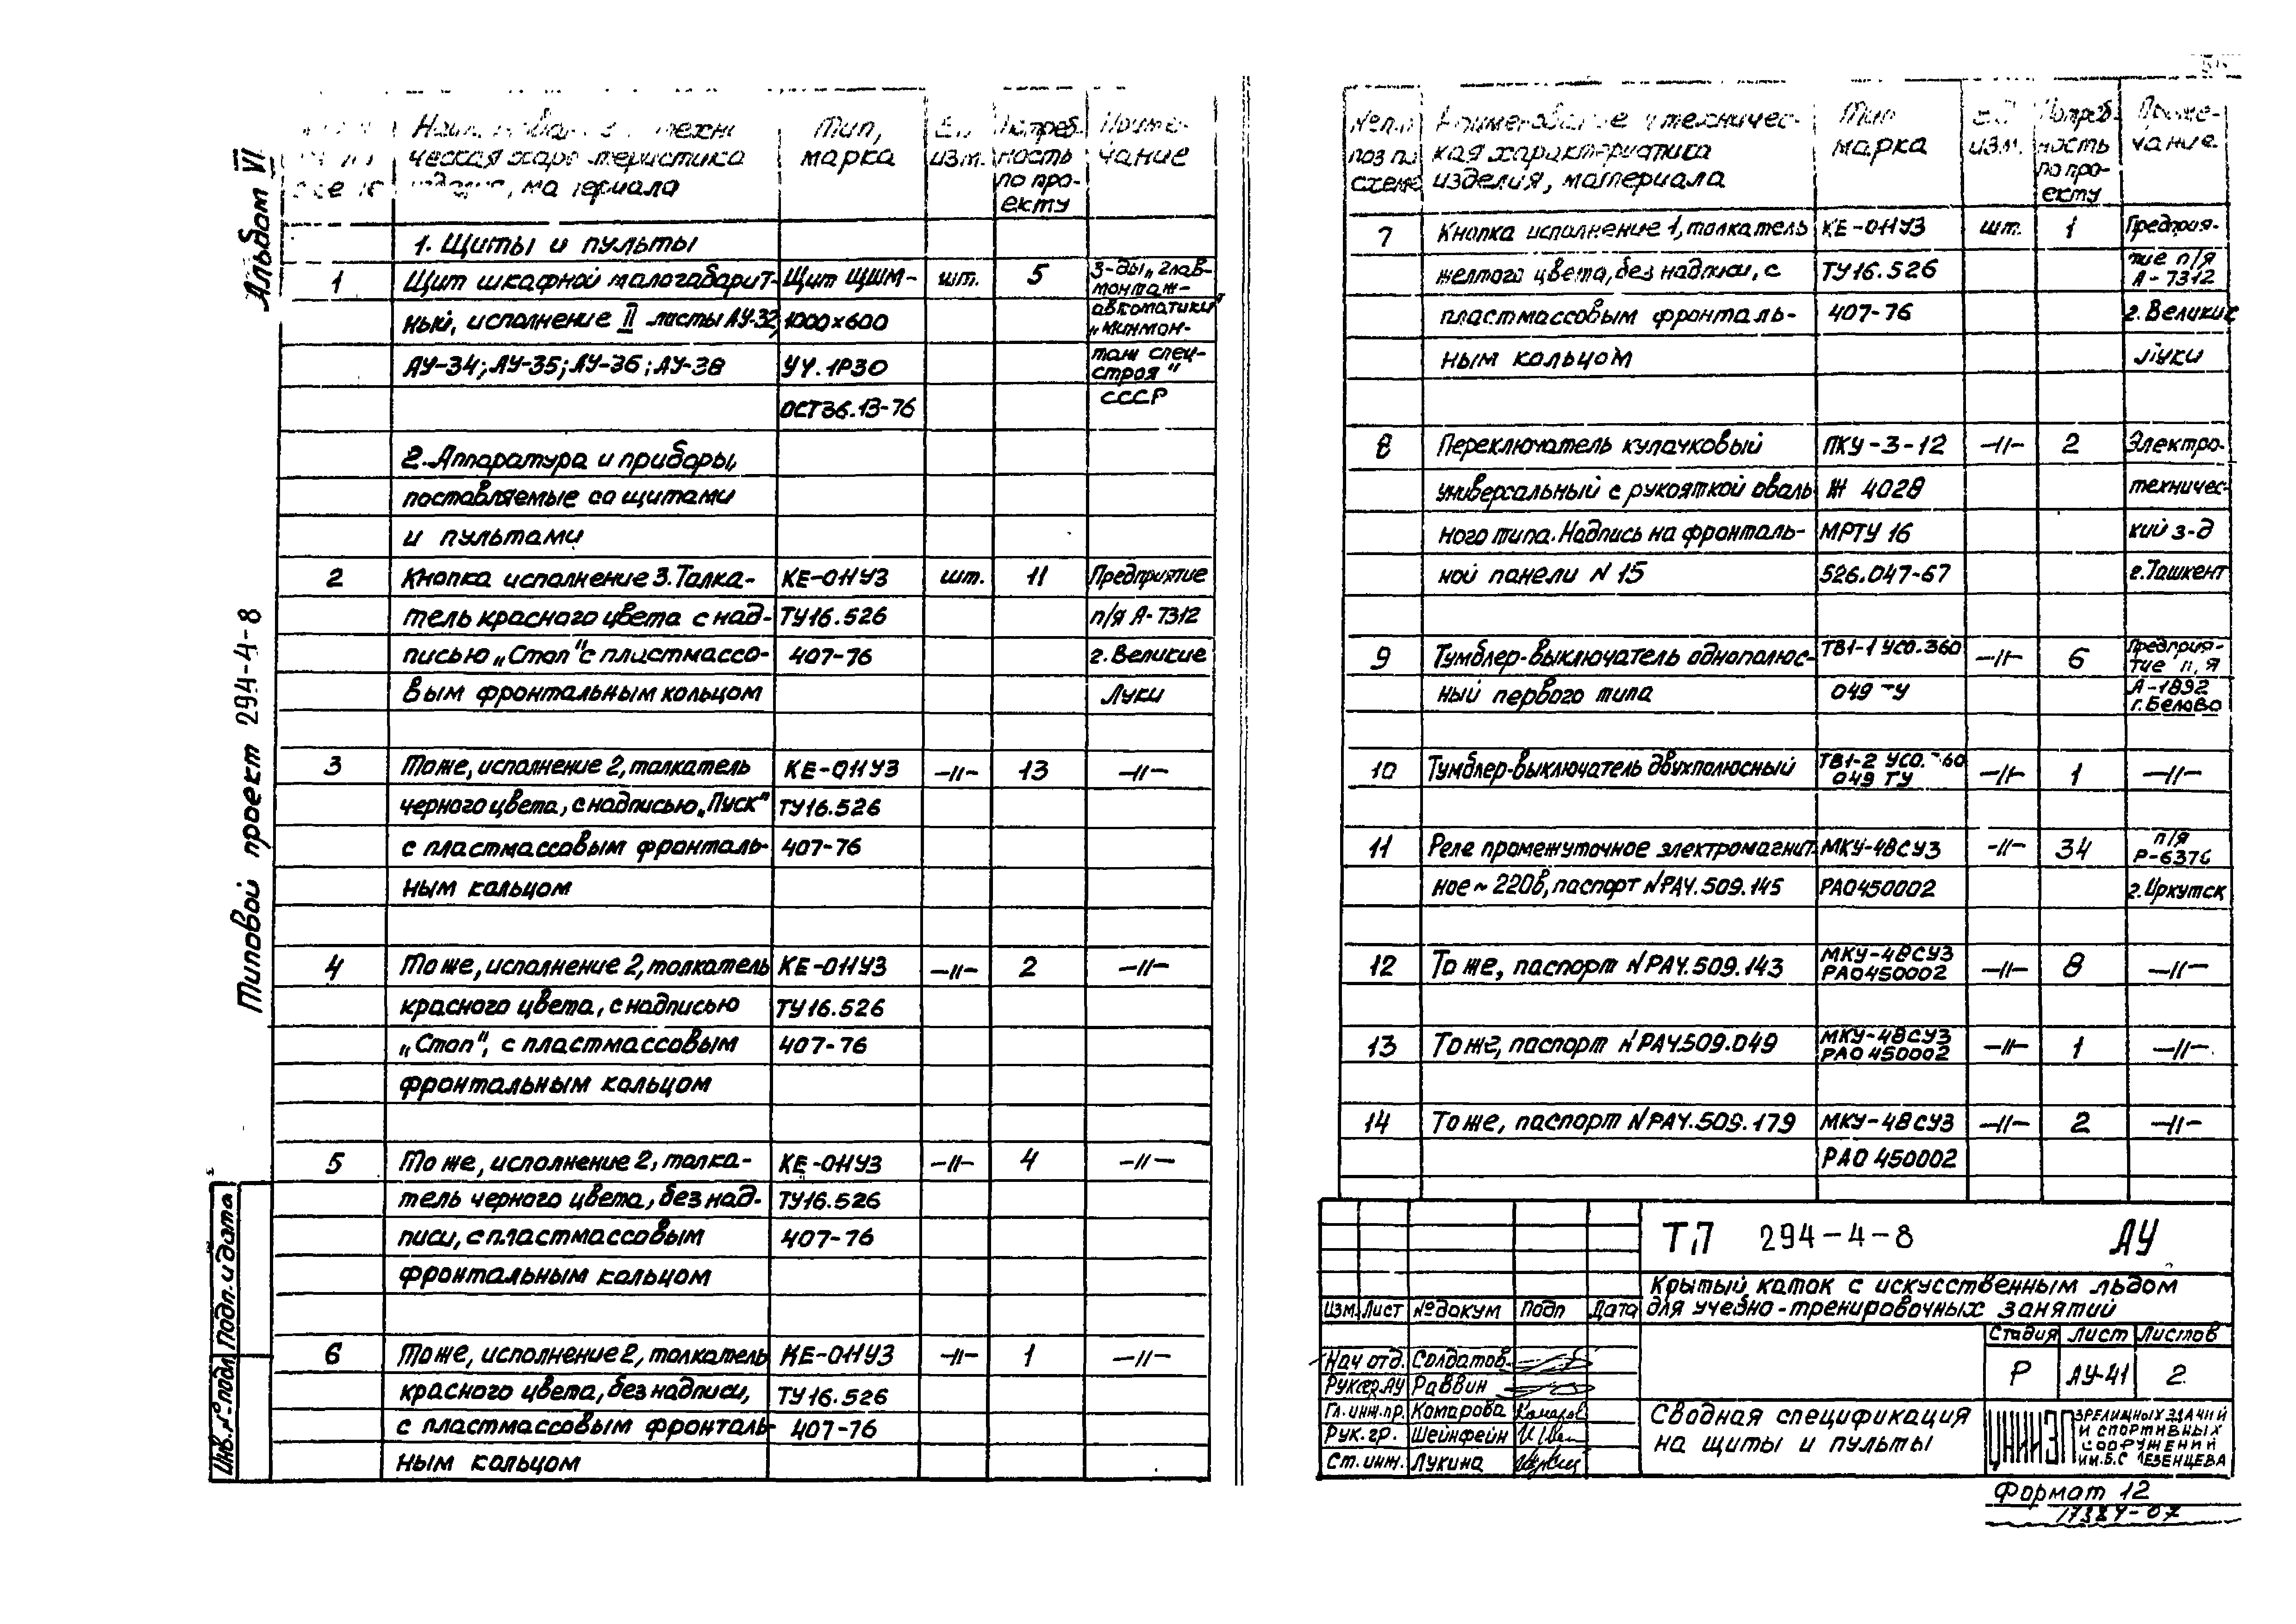 Альбом VI
Типовой проект 294-4-8
Инв.№подл. Подп. и дата
ческая
материала
Тип,
марка
изм.
Потреб-
ность
по про-
екту
Приме-
чание
1. Щиты и пульты
1 Щит шкафной малогабарит- Щит ЩШМ- шт. 5 З-ды „Глав-
монтаж-
ный, исполнение II листы АУ-32, 1000х600 автоматики"
„Минмон-
АУ-34; АУ-35; АУ-36; АУ-38 УЧ.1Р30 таж спец-
строя"
ОСТ36.13-76 СССР
2. Аппаратура и приборы,
поставляемые со щитами
и пультами
2 Кнопка исполнение 3. Толка- КЕ-011У3 шт. 11 Предприятие
тель красного цвета с над- ТУ16.526 п/я А-7312
писью „Стоп" с пластмассо- 407-76 г. Великие
вым фронтальным кольцом Луки
3 То же, исполнение 2, толкатель КЕ-011У3 –//– 13 –//–
черного цвета, с надписью „Пуск" ТУ16.526
с пластмассовым фронталь- 407-76
ным кольцом
4 То же, исполнение 2, толкатель КЕ-011У3 –//– 2 –//–
красного цвета, с надписью ТУ16.526
„Стоп", с пластмассовым 407-76
фронтальным кольцом
5 То же, исполнение 2, толка- КЕ-011У3 –//– 4 –//–
тель черного цвета, без над- ТУ16.526
писи, с пластмассовым 407-76
фронтальным кольцом
6 То же, исполнение 2, толкатель КЕ-011У3 –//– 1 –//–
красного цвета, без надписи, ТУ16.526
с пластмассовым фронталь- 407-76
ным кольцом
№п.п Наименование и техничес- Тип Ед Потреб- Приме-
поз по кая характеристика марка изм. ность чание
схеме изделия, материала по про-
екту
7 Кнопка исполнение 1, толкатель КЕ-011У3 шт. 1 Предприя-
желтого цвета, без надписи, с ТУ16.526 тие п/я
А-7312
пластмассовым фронталь- 407-76 г. Великие
ным кольцом Луки
8 Переключатель кулачковый ПКУ-3-12 –//– 2 Электро-
универсальный с рукояткой оваль Ж 4028 техничес-
ного типа. Надпись на фронталь- МРТУ 16 кий з-д
ной панели N 15 526.047-67 г. Ташкент
9 Тумблер-выключатель однополюс- ТВ1-1 УСО.360 –//– 6 Предприя-
тие п/я
ный первого типа 049 ТУ А-1892
г. Белово
10 Тумблер-выключатель двухполюсный ТВ1-2 УСО. 60 –//– 1 –//–
049 ТУ
11 Реле промежуточное электромагнит- МКУ-48СУ3 –//– 34 п/я
Р-6376
ное ~ 220в, паспорт NРАЧ.509.145 РАО450002 г. Иркутск
12 То же, паспорт NРАЧ.509.143 МКУ-48СУ3 –//– 8 –//–
РАО450002
13 То же, паспорт NРАЧ.509.049 МКУ-48СУ3 –//– 1 –//–
РАО450002
14 То же, паспорт NРАЧ.509.179 МКУ-48СУ3 –//– 2 –//–
РАО 450002
ТП 294-4-8 АУ
Крытый каток с искусственным льдом
для учебно-тренировочных занятий
Изм. Лист №докум Подп Дата
Стадия Лист Листов
Р АУ-41 2
Нач отд. Солдатов
Рук.сер.АУ Раввин
Гл.инж.пр. Комарова
Рук. гр. Шейнфейн
Ст. инж. Лукина
Сводная спецификация
на щиты и пульты
ЗРЕЛИЩНЫХ ЗДАНИЙ
И СПОРТИВНЫХ
СООРУЖЕНИЙ
ИМ.Б.С МЕЗЕНЦЕВА
Формат 12
17384-07